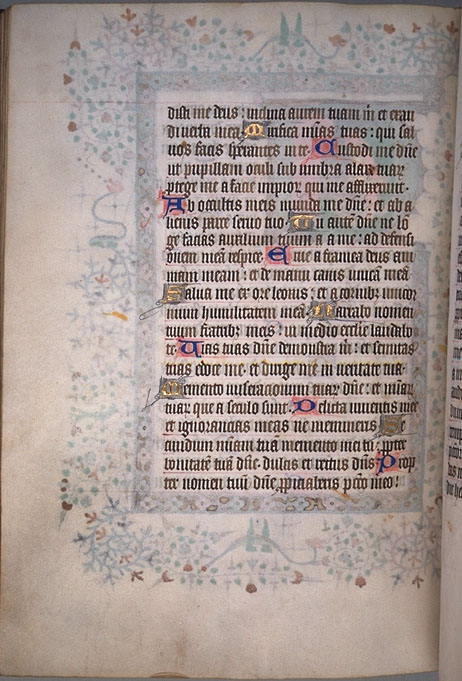 disti me deus: inclina aurem tuam m̄ et exau
di verba mea. Mirifica mīas tuas: qui sal
vos facis sperantes in te. Custodi me dn̄e
ut pupillam oculi sub umbra alaꝝ tuaꝝ
ptege me a facie impioꝝ qui me afflixerunt.
Ab occultis meis munda me dn̄e: et ab a
lienis parce servo tuo. Tu autē dn̄e ne lō
ge facias auxilium tuum a me: ad defensi
onem meā respice. Erue a framea deus ani
mam meam: et de manu canis unicā meā
Salva me ex ore leonis: et a cornibꝫ unicor
nium humilitatem meā. Narrabo nomen
tuum fratribꝫ meis: in medio ecclie laudabo
te. Vias tuas dn̄e demonstra m̄: et semitas
tuas edoce me. et dirige me in veritate tua.
Memento miseracionum tuaꝝ dn̄e: et mīaꝝ
tuaꝝ que a seculo sunt. Delicta iuventis mee
et ignorancias meas ne memineris. Se
cundum mīam tuā memento mei tu: ppter
bonitatē tuā dn̄e. Dulcis et rectus dn̄s Prop
ter nomen tuū dn̄e, ppiciaberis pctō meo: